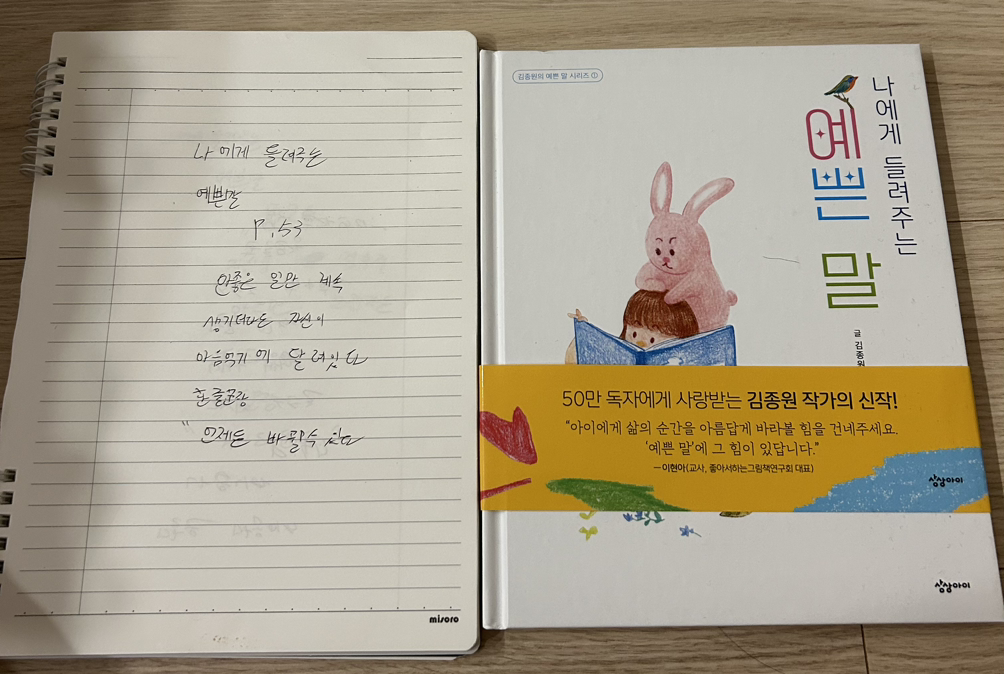 나에게 들려주는
예쁜말
P.53
안좋은 일만 계속
생기더라도 자신이
마음먹기에 달려있다
"언제든 바꿀수 있다
misoro
김종원의 예쁜 말 시리즈 ①
나에게 들려주는
예쁜 말
글 김종원
50만 독자에게 사랑받는 김종원 작가의 신작!
"아이에게 삶의 순간을 아름답게 바라볼 힘을 건네주세요.
'예쁜 말'에 그 힘이 있답니다."
—이현아(교사, 좋아서하는그림책연구회 대표)
상상아이
상상아이